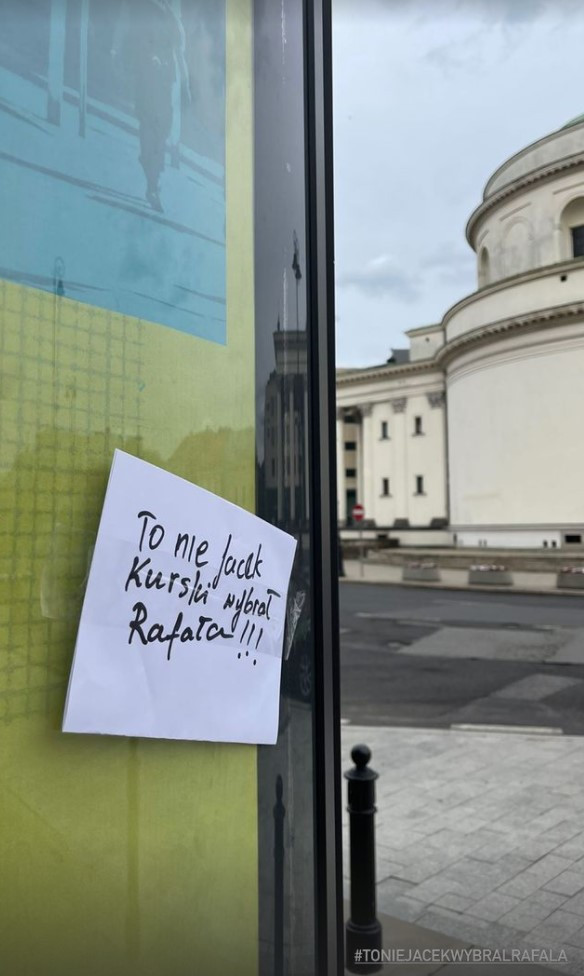 To nie Jacek
Kurski wybrał
Rafała!!!
#TONIEJACEKWYBRALRAFALA